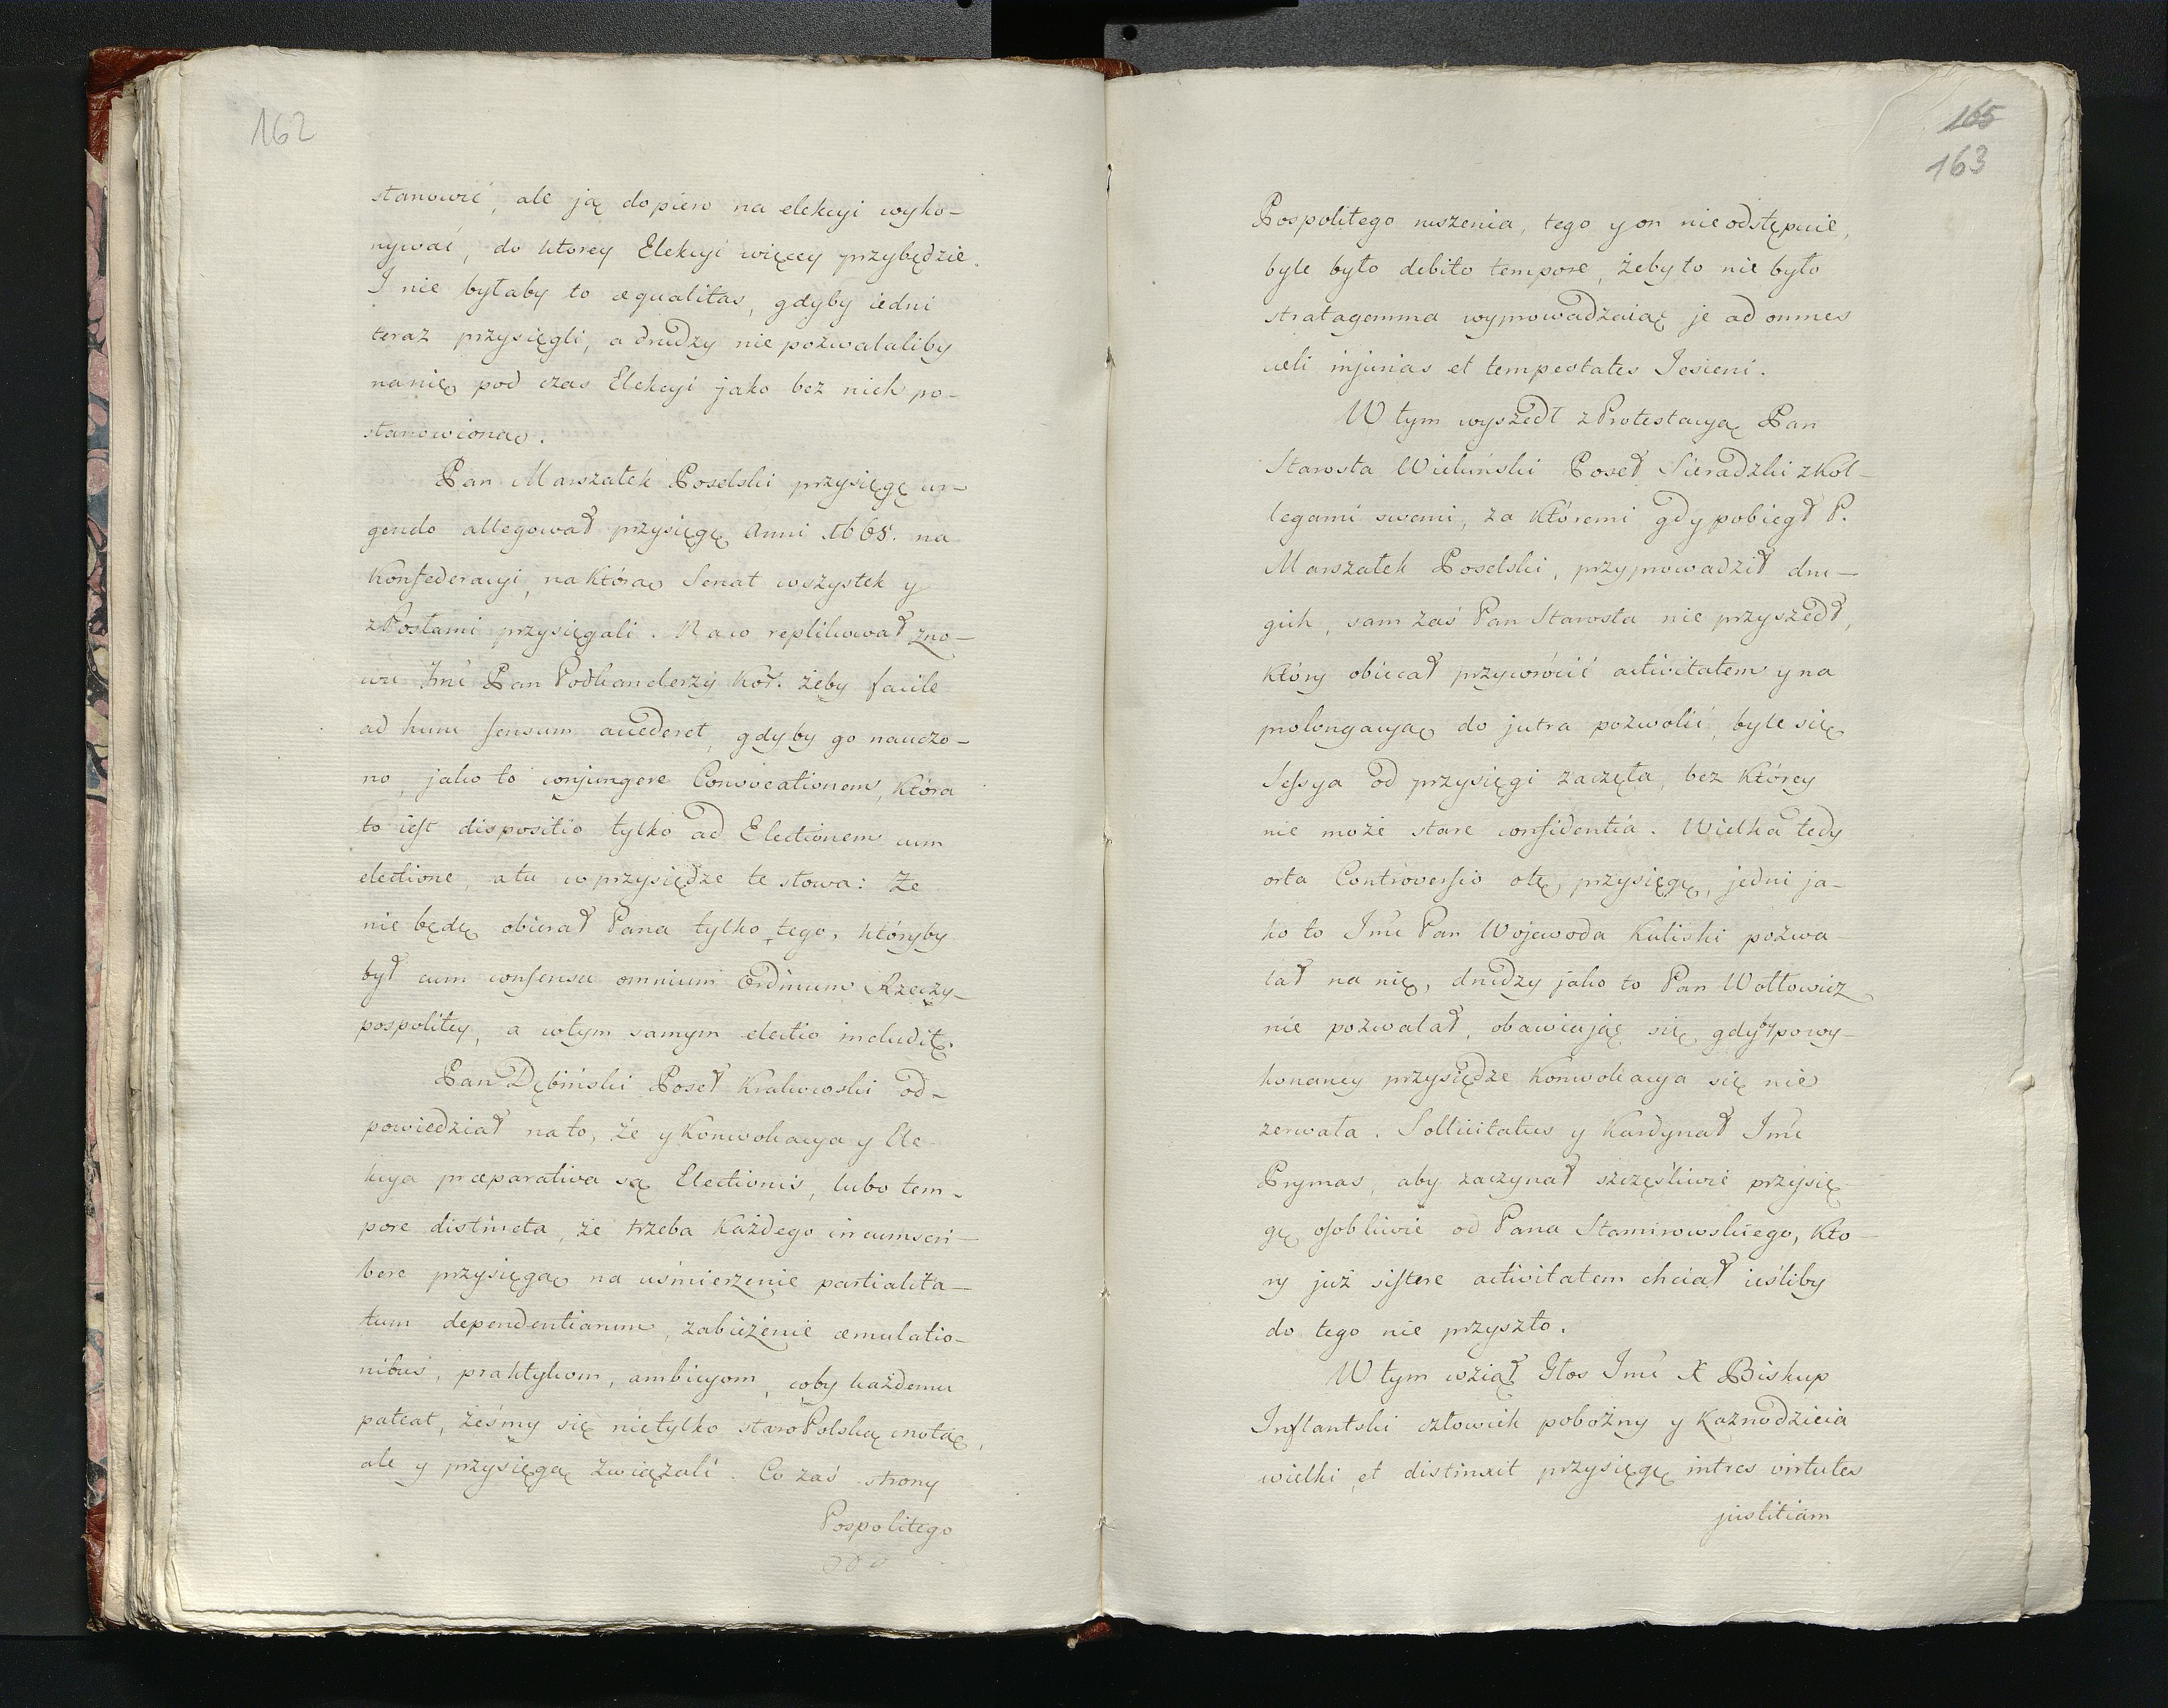 162
stanowić, ale ją dopiero na elekcyi wyko-
nywać, do ktorey Elekcyi więcey przybędzie.
I nie byłaby to æqualitas, gdyby iedni
teraz przysięgli, a drudzy nie pozwalaliby
nanię pod czas Elekcyi jako bez nich po-
stanowioną.
Pan Marszałek Poselski przysięgę ur-
gendo allegował przysięgę Anni 1668. na
Konfederacyi, na Którą Senat wszystek y
z Posłami przysięgali. Na co replikował zno-
wu Jmć Pan Podkanclerzy Kor. żeby facile
ad hunc sensum accederet, gdyby go nauczo-
no, jako to conjungere Convocationem, Która
to iest dispositio tylko ad Electionem cum
electione, a tu w przysiędze te słowa: Że
nie będę obierał Pana tylko tego, któryby
był cum consensu omnium Ordinum Rzeczy-
pospolitey, a w tym samym electio includit.
Pan Dębiński Poseł Krakowski od-
powiedział na to, że y Konwokacya y Ele-
kcya præparativa są Electionis, lubo tem-
pore distincta, że trzeba Każdego circumscri-
bere przysięgą na uśmierzenie partialita-
tum dependentiarum, zabieżenie æmulatio-
nibus, praktykom, ambicyom, coby każdemu
pateat, żeśmy się nietylko staro Polską cnotą,
ale y przysięgą związali. Co zaś strony
Pospolitego
165
163
Pospolitego ruszenia, tego y on nie odstępuie,
byle było debito tempore, żeby to nie było
stratagemma wyprowadzaiąc je ad omnes
cæli injurias et tempestates Jesieni.
W tym wyszedł z Protestacyą Pan
Starosta Wieluński Poseł Sieradzki z Kol-
legami swemi, za Któremi gdy pobiegł P.
Marszałek Poselski, przyprowadził dru-
gich, sam zaś Pan Starosta nie przyszedł,
Który obiecał przywrócić activitatem y na
prolongacyą do jutra pozwolić, byle się
Sessya od przysięgi zaczęła, bez Którey
nie może stare confidentia. Wielka tedy
orta Controversio o tę przysięgę, jedni ja-
ko to Jmć Pan Wojewoda Kaliski pozwa-
lał na nię, drudzy jako to Pan Wołłowicz
nie pozwalał, obawiając się gdyby po wy-
konaney przysiędze Konwokacya się nie
zerwała. Sollicitatus y Kardynał Jmć
Prymas, aby zaczynał szczęśliwie przysię-
gę osobliwie od Pana Stamirowskiego, Kto-
ry już sistere activitatem chciał ieśliby
do tego nie przyszło.
W tym wziął Głos Jmć X Biskup
Inflantski człowiek pobożny y Kaznodzieia
wielki, et distinxit przysięgę intres virtutes
justitiam